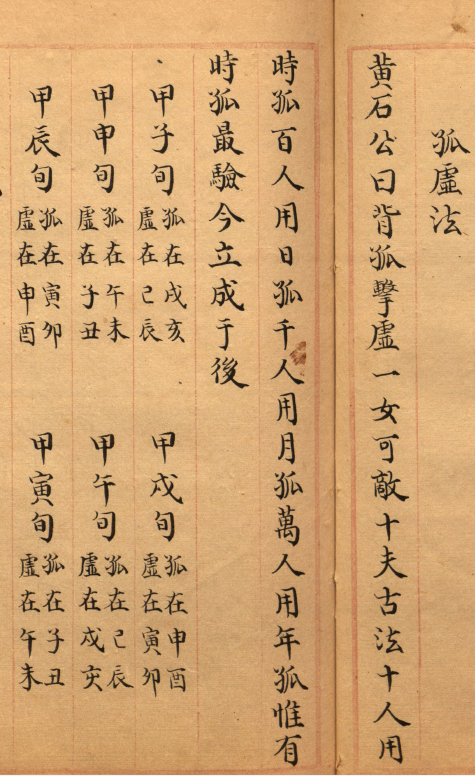 孤虛法
黄石公曰背孤擊虛一女可敵十夫古法十人用
時孤百人用日孤千人用月孤萬人用年孤惟有
時孤最驗今立成于後
甲子旬 孤在戌亥 虛在已辰 甲戌旬 孤在申酉 虛在寅卯
甲申旬 孤在午未 虛在子丑 甲午旬 孤在已辰 虛在戌亥
甲辰旬 孤在寅卯 虛在申酉 甲寅旬 孤在子丑 虛在午未